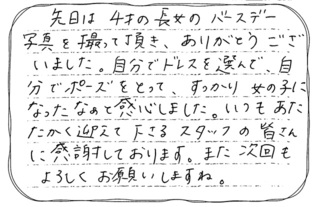 先日は4才の長女のバースデー
写真を撮って頂き、ありがとうござ
いました。自分でドレスを選んで、自
分でポーズをとって、すっかり女の子に
なったなぁと感心しました。いつもあた
たかく迎えて下さるスタッフの皆さん
に感謝しております。また次回も
よろしくお願いしますね。